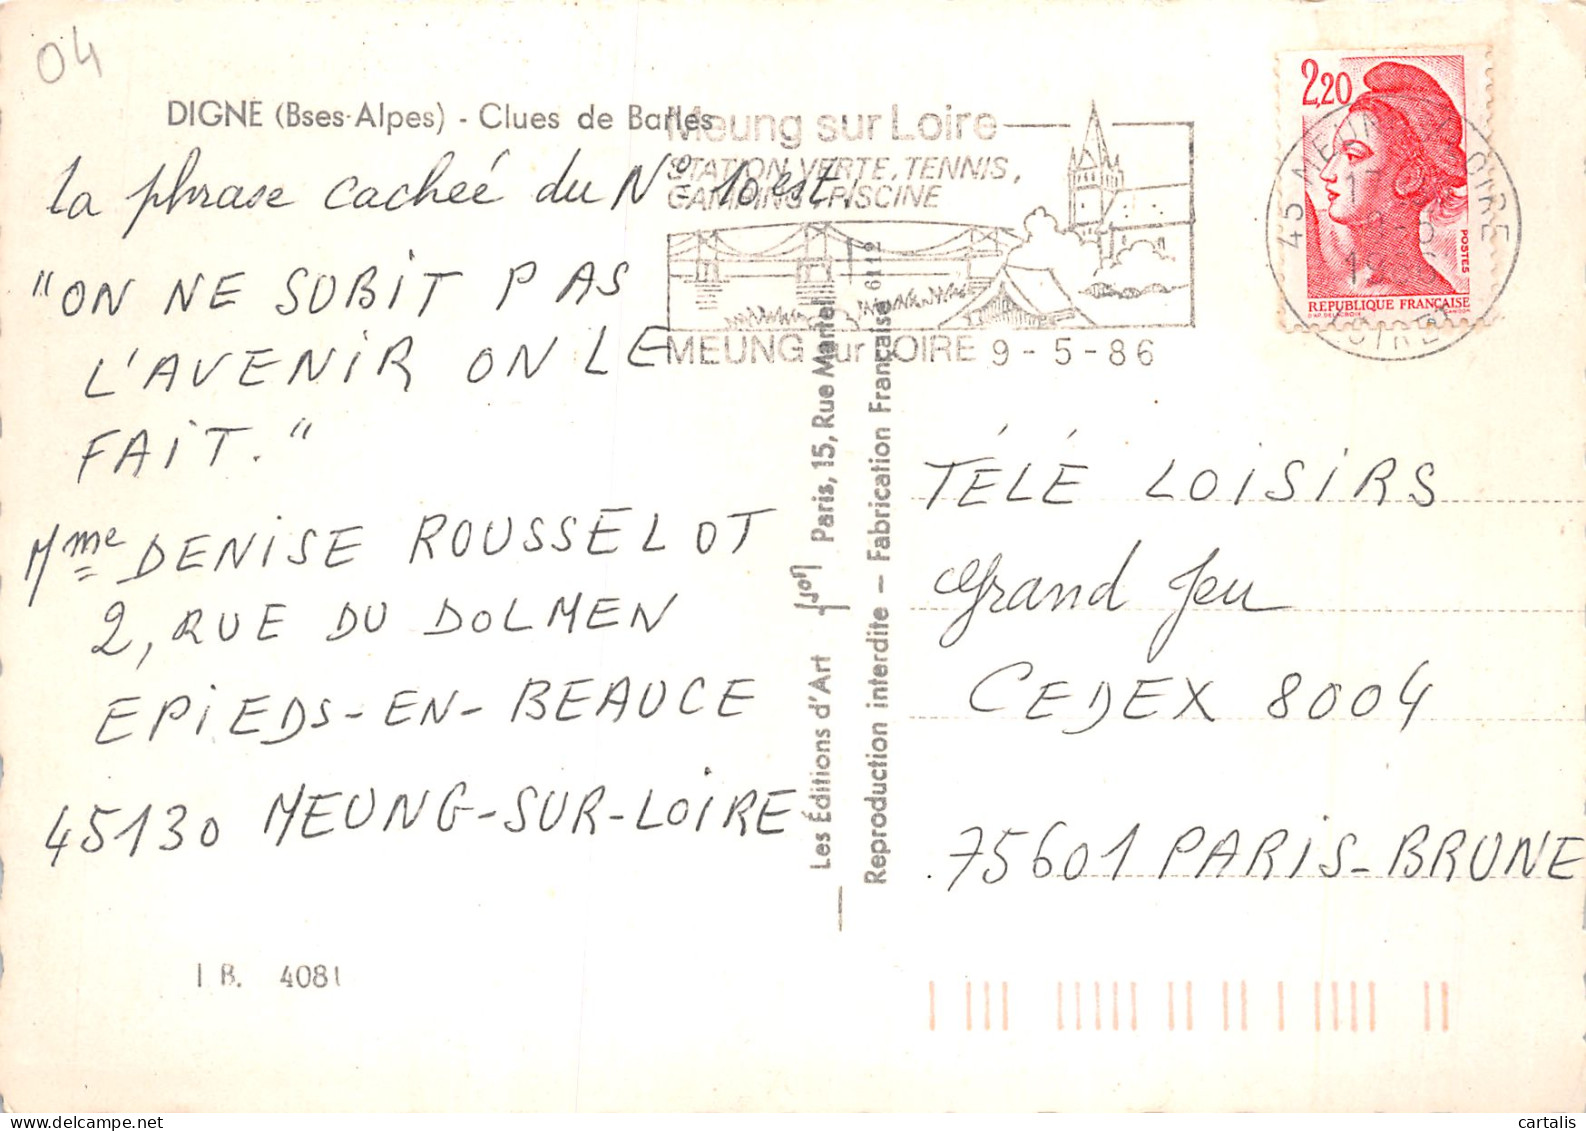 04
DIGNE (Bses-Alpes) - Clues de Barles
la phrase cacheé du N° 10 est.
"ON NE SUBIT PAS
L'AVENIR ON LE
FAIT."
Mme DENISE ROUSSELOT
2, RUE DU DOLMEN
EPIEDS-EN-BEAUCE
45130 MEUNG-SUR-LOIRE
I B. 4081
Meung sur Loire
STATION VERTE, TENNIS,
CAMPING, PISCINE
MEUNG sur LOIRE 9-5-86
Les Éditions d'Art Yvon Paris, 15, Rue Martel
Reproduction interdite — Fabrication Française 6112
2,20
POSTES
REPUBLIQUE FRANÇAISE
45 MEUNG LOIRE
LOIRET
TÉLÉ LOISIRS
Grand Jeu
CEDEX 8004
75601 PARIS-BRUNE
cartalis